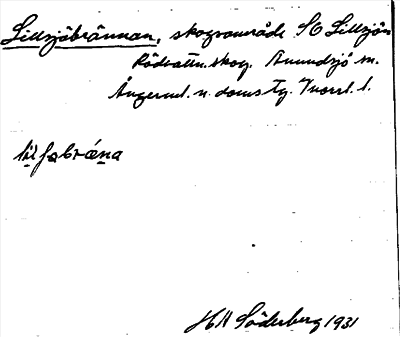 Lillsjöbrännan, skogsområde SO Lillsjön
Rödvattn. skog. Anundsjö sn.
Ångerml. n. doms tg. Vnorrl. l.
HN Söderberg 1931